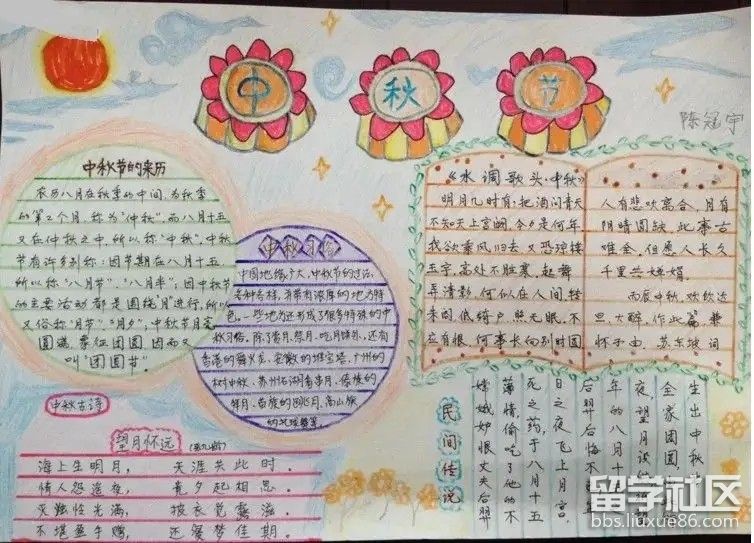 中秋节
陈冠宇
中秋节的来历
农历八月在秋季的中间,为秋季
的第2个月,称为"仲秋",而八月十五
又在仲秋之中,所以称"中秋"。中秋
节有许多别称:因节期在八月十五
所以称"八月节"、"八月半";因中秋节
的主要活动都是围绕"月"进行,所以
又俗称"月节""月夕",中秋节月亮
圆满,象征团圆,因而又
叫"团圆节"。
中秋习俗
中国地缘广大,中秋节的过法,
多种多样,并带有浓厚的地方特
色。一些地方还形成了很多特殊的中
秋习俗。除了赏月、祭月、吃月饼外,还有
香港的舞火龙、安徽的堆宝塔、广州的
树中秋、苏州石湖看串月、傣族的
拜月、苗族的跳月、高山族
的托球舞等。
《水调歌头·中秋》
明月几时有,把酒问青天
不知天上宫阙,今夕是何年
我欲乘风归去,又恐琼楼
玉宇,高处不胜寒,起舞
弄清影,何似在人间,转
朱阁,低绮户,照无眠,不
应有恨,何事长向别时圆
人有悲欢离合,月有
阴晴圆缺,此事古
难全,但愿人长久
千里共婵娟。
丙辰中秋,欢饮达
旦,大醉,作此篇,兼
怀子由,苏东坡词
中秋古诗
望月怀远
海上生明月,天涯共此时。
情人怨遥夜,竟夕起相思。
灭烛怜光满,披衣觉露滋。
不堪盈手赠,还寝梦佳期。
民间传说
嫦娥妒恨丈夫后羿
薄情,偷吃了他的不
死之药,于八月十五
日之夜飞上月宫。
后羿后悔不
年的八月十
夜,望月
全家团圆,
生出中秋
留学社区
bbs.liuxue86.com